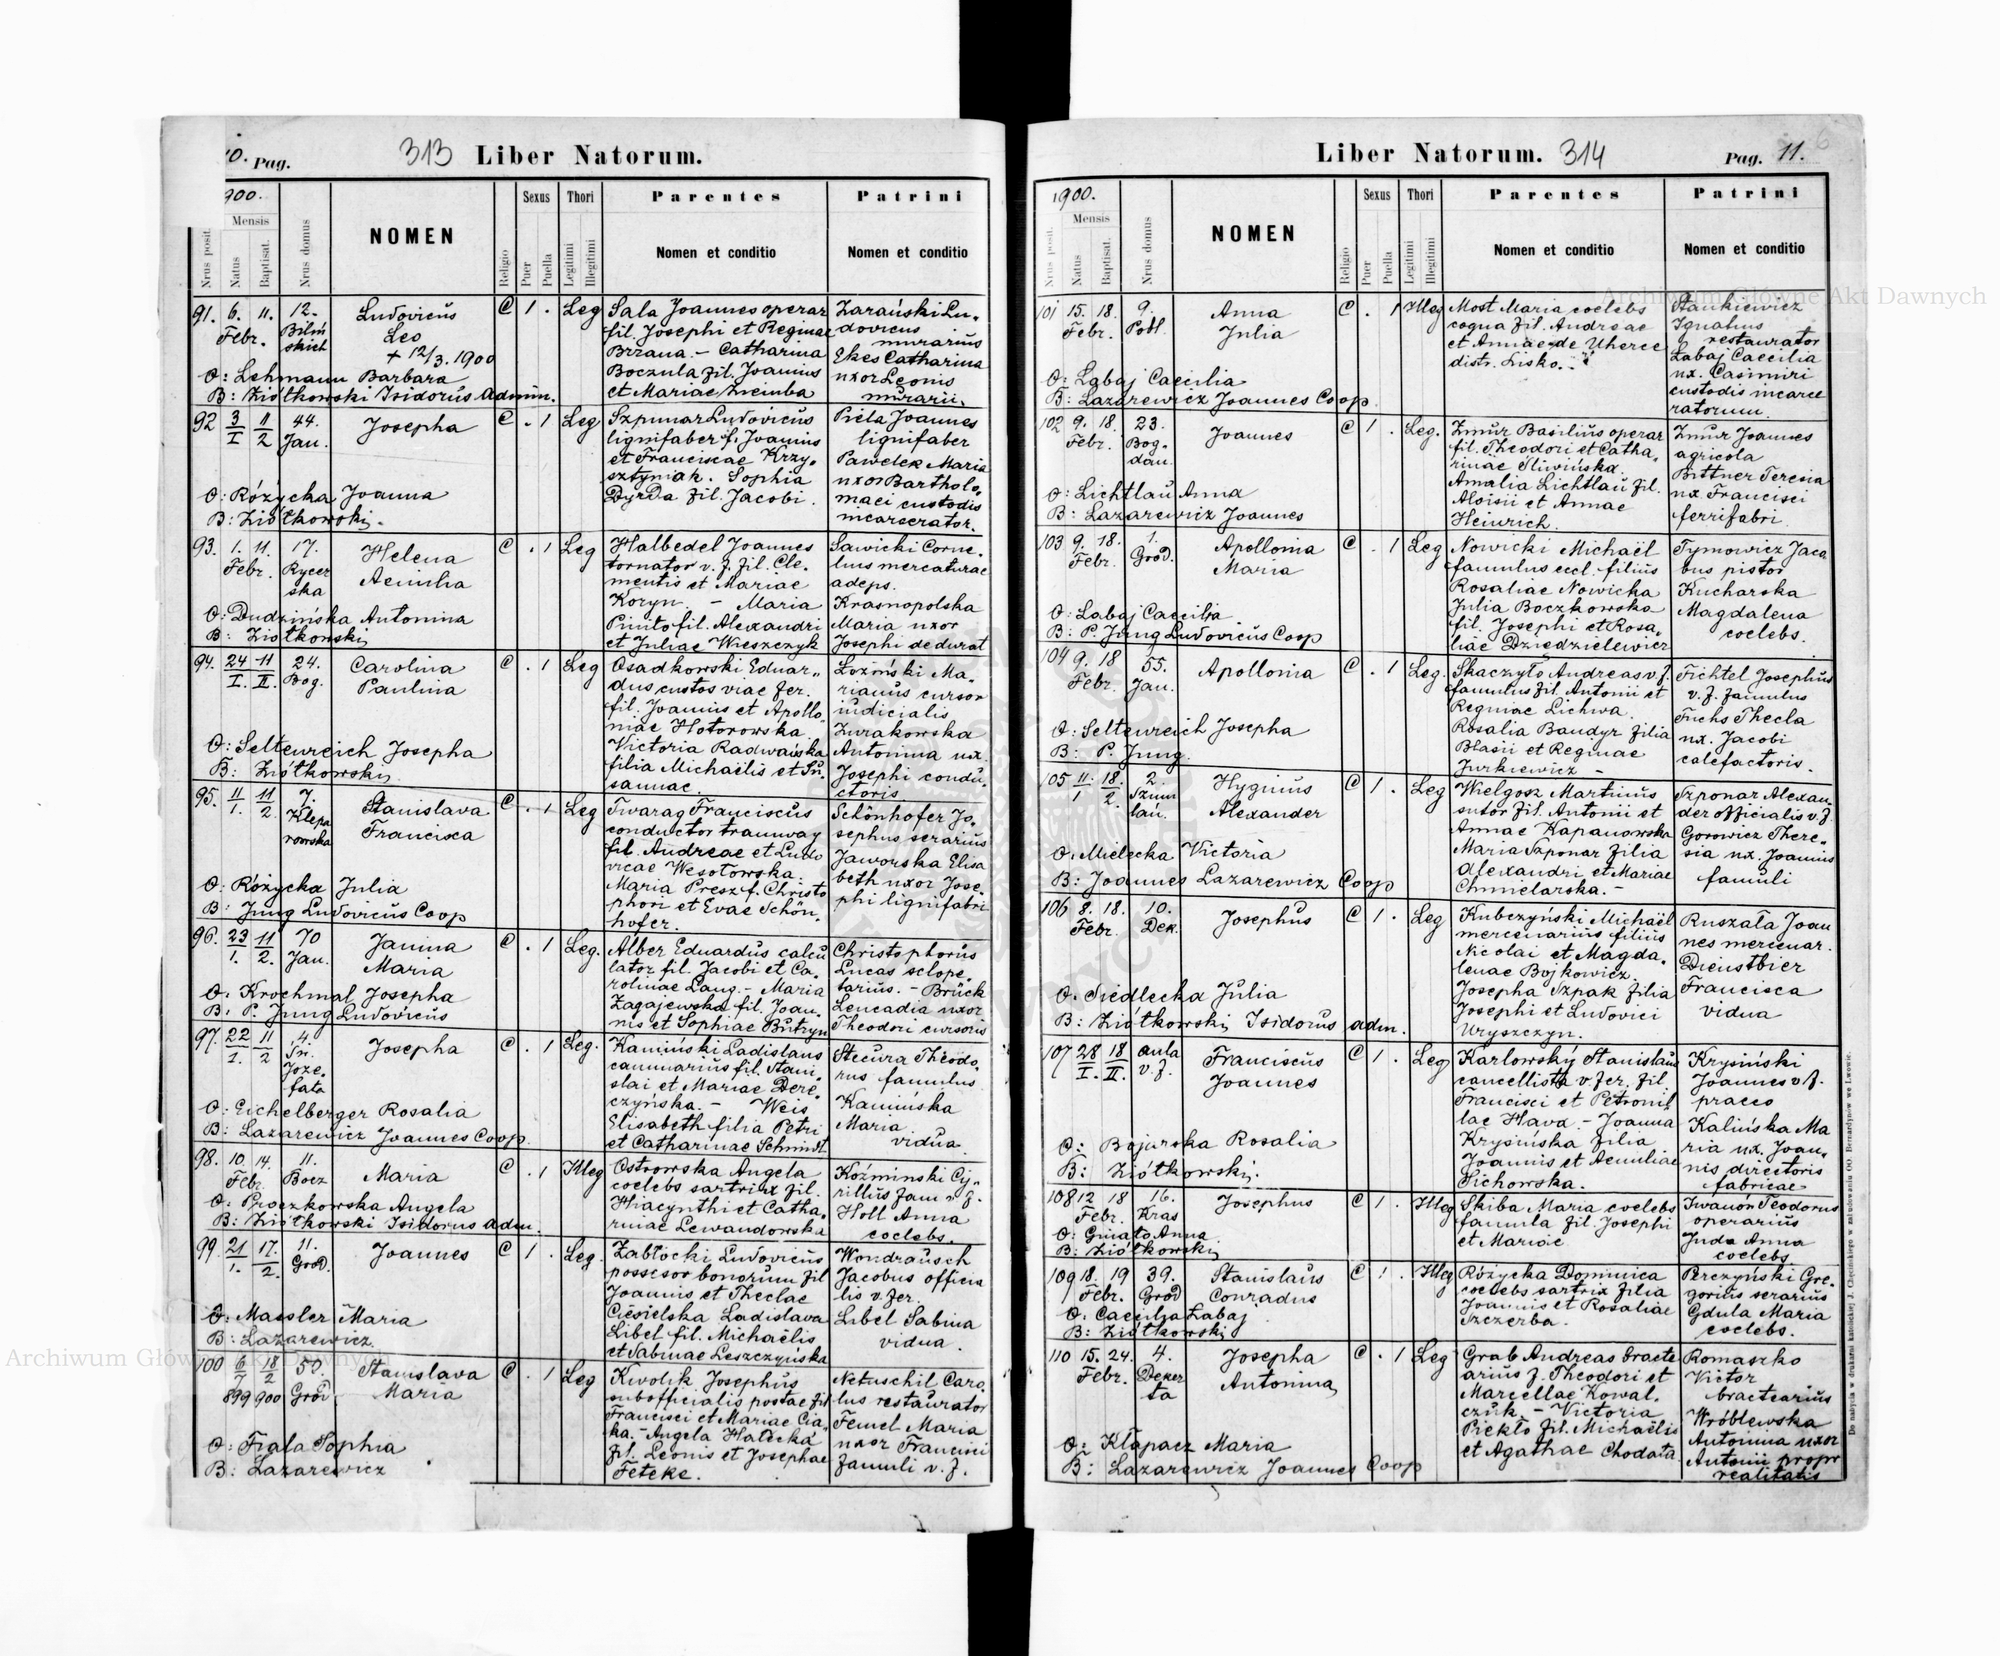 10. Pag. 313 Liber Natorum.
1900.
Mensis
Nrus posit. Natus Baptisat. Nrus domus NOMEN Religio
Sexus Puer Puella
Thori Legitimi Illegitimi
Parentes Nomen et conditio
Patrini Nomen et conditio
91. 6. 11. Febr. 12. Bilińskich
Ludovicus
Leo
+ 12/3. 1900
C 1 . Leg
Sala Joannes operar
fil. Josephi et Reginae
Brzana. – Catharina
Boczula fil. Joannis
et Mariae Zieinba
Zarański Lu-
dovicus
murarius
Ekes Catharina
uxor Leonis
murarii.
O: Lehmann Barbara
B: Ziółkowski Isidorus Admin.
92 3/I 11/2 44. Jan.
Josepha
C . 1 Leg
Szpunar Ludovicus
lignifaber f. Joannis
et Franciscae Krzy-
sztyniak. Sophia
Dyrda fil. Jacobi.
Piela Joannes
lignifaber
Pawelek Maria
uxor Bartholo-
maei custodis
incarcerator.
O: Różycka Joanna
B: Ziółkowski.
93. 1. 11. Febr. 17. Rycerska
Helena
Aemilia
C . 1 Leg
Halbedel Joannes
tornator v. f. fil. Cle-
mentis et Mariae
Koryn. – Maria
Pinto fil. Alexandri
et Juliae Wieszczyk
Sawicki Corne-
lius mercaturae
adeps.
Krasnopolska
Maria uxor
Josephi de durat
O: Dudzińska Antonina
B: Ziółkowski
94. 24/I. 11/II. 24. Bog.
Carolina
Paulina
C . 1 Leg
Osadkowski Eduar-
dus custos viae fer.
fil. Joannis et Apollo-
niae Hotorowska
Victoria Radwańska
filia Michaëlis et Su-
sannae.
Łoziński Ma-
rianus cursor
iudicialis
Żurakowska
Antonina ux.
Josephi condu-
ctoris
O: Seltenreich Josepha
B: Ziółkowski
95. 11/1. 11/2. 7. Kleparowska
Stanislava
Francisca
C . 1 Leg
Twarag Franciscus
conductor tramway
fil. Andreae et Ludo
vicae Wesołowska.
Maria Presz f. Christo
phori et Evae Schön-
hofer.
Schönhofer Jo-
sephus serarius
Jaworska Elisa
beth uxor Jose-
phi lignifabri
O: Różycka Julia
B: Jung Ludovicus Coop
96. 23/1. 11/2. 70 Jan.
Janina
Maria
C . 1 Leg.
Alber Eduardus calcu
lator fil. Jacobi et Ca-
rolinae Lang. – Maria
Zagajewska fil. Joan-
nis et Sophiae Butryn
Christophorus
Lucas sclope-
tarius. – Brück
Leucadia uxor
Theodori cursoris
O: Krochmal Josepha
B: P. Jung Ludovicus
97. 22/1. 11/2 4. Śn. Jozefata
Josepha
C . 1 Leg.
Kamiński Ladislaus
cannarius fil. Stani-
slai et Mariae Dere-
czyńska. – Weis
Elisabeth filia Petri
et Catharinae Schmidt
Stecura Theodo-
rus famulus
Kamińska
Maria
vidua.
O: Eichelberger Rosalia
B: Lazarewicz Joannes Coop.
98. 10. 14. Febr. 11. Bocz
Maria
C . 1 Illeg
Ostrowska Angela
coelebs sartrix fil.
Hiacynthi et Catha-
rinae Lewandowska
Koźminski Cy-
rillus fam v. f.
Holl Anna
coelebs.
O: Proczkowska Angela
B: Ziółkowski Isidorus adm.
99. 21/1. 17./2. 11. Grod.
Joannes
C 1 . Leg.
Zabłocki Ludovicus
possesor bonorum fil
Joannis et Theclae
Ciesielska Ladislava
Libel fil. Michaëlis
et Sabinae Leszczyńska
Wondrausch
Jacobus officia
lis v. fer.
Libel Sabina
vidua.
O: Maesler Maria
B: Lazarewicz
100 6/7 18/2 899 900 50. Grod.
Stanislava
Maria
C . 1 Leg
Kwolik Josephus
subofficialis postae fil
Francisci et Mariae Cia-
ka. – Angela Halecka
fil. Leonis et Josephae
Feteke.
Netuschil Caro-
lus restaurator
Femel Maria
uxor Francisci
famuli v. f.
O: Fiala Sophia
B: Lazarewicz
Liber Natorum. 314 Pag. 11.
1900.
Mensis
Nrus posit. Natus Baptisat. Nrus domus NOMEN Religio
Sexus Puer Puella
Thori Legitimi Illegitimi
Parentes Nomen et conditio
Patrini Nomen et conditio
101 15. 18. Febr. 9. Podl.
Anna
Julia
C . 1 Illeg
Most Maria coelebs
coqua fil. Andreae
et Annae de Uherce
distr. Lisko.
Stankiewicz
Ignatius
restaurator
Łabaj Caecilia
ux. Casimiri
custodis incarce
ratorum.
O: Labaj Caecilia
B: Lazarewicz Joannes Coop.
102 9. 18. Febr. 23. Bogdan.
Joannes
C 1 . Leg.
Żmur Basilius operar
fil. Theodori et Catha-
rinae Śliwińska.
Amalia Lichtlau fil.
Aloisii et Annae
Heinrich.
Żmur Joannes
agricola
Bittner Teresia
ux Francisci
ferrifabri.
O: Lichtlau Anna
B: Lazarewicz Joannes
103 9. 18. Febr. 1. Grod.
Apollonia
Maria
C . 1 Leg
Nowicki Michaël
famulus eccl. filius
Rosaliae Nowicka
Julia Boczkowska
fil. Josephi et Rosa-
liae Dziedzielewicz
Tymowicz Jaco
bus pistor
Kucharska
Magdalena
coelebs.
O: Labaj Caecilia
B: P. Jung Ludovicus Coop
104 9. 18 Febr. 55. Jan.
Apollonia
C . 1 Leg.
Skaczyło Andreas v. f.
famulus fil. Antonii et
Reginae Lichwa.
Rosalia Baudyr filia
Blasii et Reginae
Jurkiewicz –
Fichtel Josephus
v. f. famulus
Fuchs Thecla
ux. Jacobi
calefactoris.
O: Seltenreich Josepha
B: P. Jung
105 11./1 18./2. 2. Szumlań.
Hyginus
Alexander
C 1 . Leg
Wielgosz Martinus
sutor fil. Antonii et
Annae Kapanowska
Maria Szponar filia
Alexandri et Mariae
Chmielarska. –
Szponar Alexan-
der officialis v. f.
Gorowicz There-
sia ux. Joannis
famuli
O: Mielecka Victoria
B: Joannes Lazarewicz Coop
106 8. 18. Febr. 10. Dek.
Josephus
C 1 . Leg
Kubczyński Michaël
mercenarius filius
Nicolai et Magda-
lenae Bojkowicz
Josepha Szpak filia
Josephi et Ludovici
Uryszczyn.
Ruszała Joan
nes mercenar.
Dienstbier
Francisca
vidua
O: Siedlecka Julia
B: Ziółkowski Isidorus adm.
107 28/I. 18/II. aula v. f.
Franciscus
Joannes
C 1 . Leg
Karlowský Stanislaus
cancellista v. fer. fil.
Francisci et Petronil
lae Hava. – Joanna
Krysińska filia
Joannis et Aemiliae
Sichowska.
Krysiński
Joannes v. f.
praeco
Kalińska Ma
ria ux. Joan-
nis directoris
fabricae
O: Bojarska Rosalia
B: Ziółkowski.
108 12 18 Febr. 16. Kras
Josephus
C 1 . Illeg
Skiba Maria coelebs
famula fil. Josephi
et Mariae
Iwanón Teodorus
operarius
Juda Anna
coelebs
O: Gniato Anna
B: Ziółkowski
109 18. 19 Febr. 39. Grod
Stanislaus
Conradus
C 1 . Illeg
Różycka Dominica
coelebs sartrix filia
Joannis et Rosaliae
Szczerba.
Perczyński Gre-
gorius serarius
Gdula Maria
coelebs.
O. Caecilia Łabaj
B: Ziółkowski
110 15. 24. Febr. 4. Dekerta
Josepha
Antonina
C . 1 Leg
Grab Andreas bracte
arius f. Theodori et
Marcellae Kowal-
czuk. – Victoria
Piekło fil. Michaëlis
et Agathae Chodata
Romaszko
Victor
bractearius
Wróblewska
Antonina uxor
Antonii propr
realitatis
O: Kłapacz Maria
B: Lazarewicz Joannes Coop
Do nabycia w drukarni katolickiej J. Chęcińskiego w zabudowaniu OO. Bernardynów we Lwowie.
Archiwum Główne Akt Dawnych
Archiwum Główne Akt Dawnych